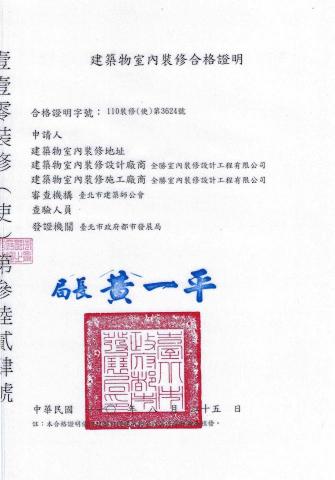 建築物室內裝修合格證明
合格證明字號：110裝修(使)第3624號
申請人
建築物室內裝修地址
建築物室內裝修設計廠商 全勝室內裝修設計工程有限公司
建築物室內裝修施工廠商 全勝室內裝修設計工程有限公司
審查機構 臺北市建築師公會
查驗人員
發證機關 臺北市政府都市發展局
局長 黃一平
臺北市政府都市發展局印
中華民國 一一〇 年 八 月 十五 日
註：本合格證明
壹壹零裝修（使）第參陸貳肆號